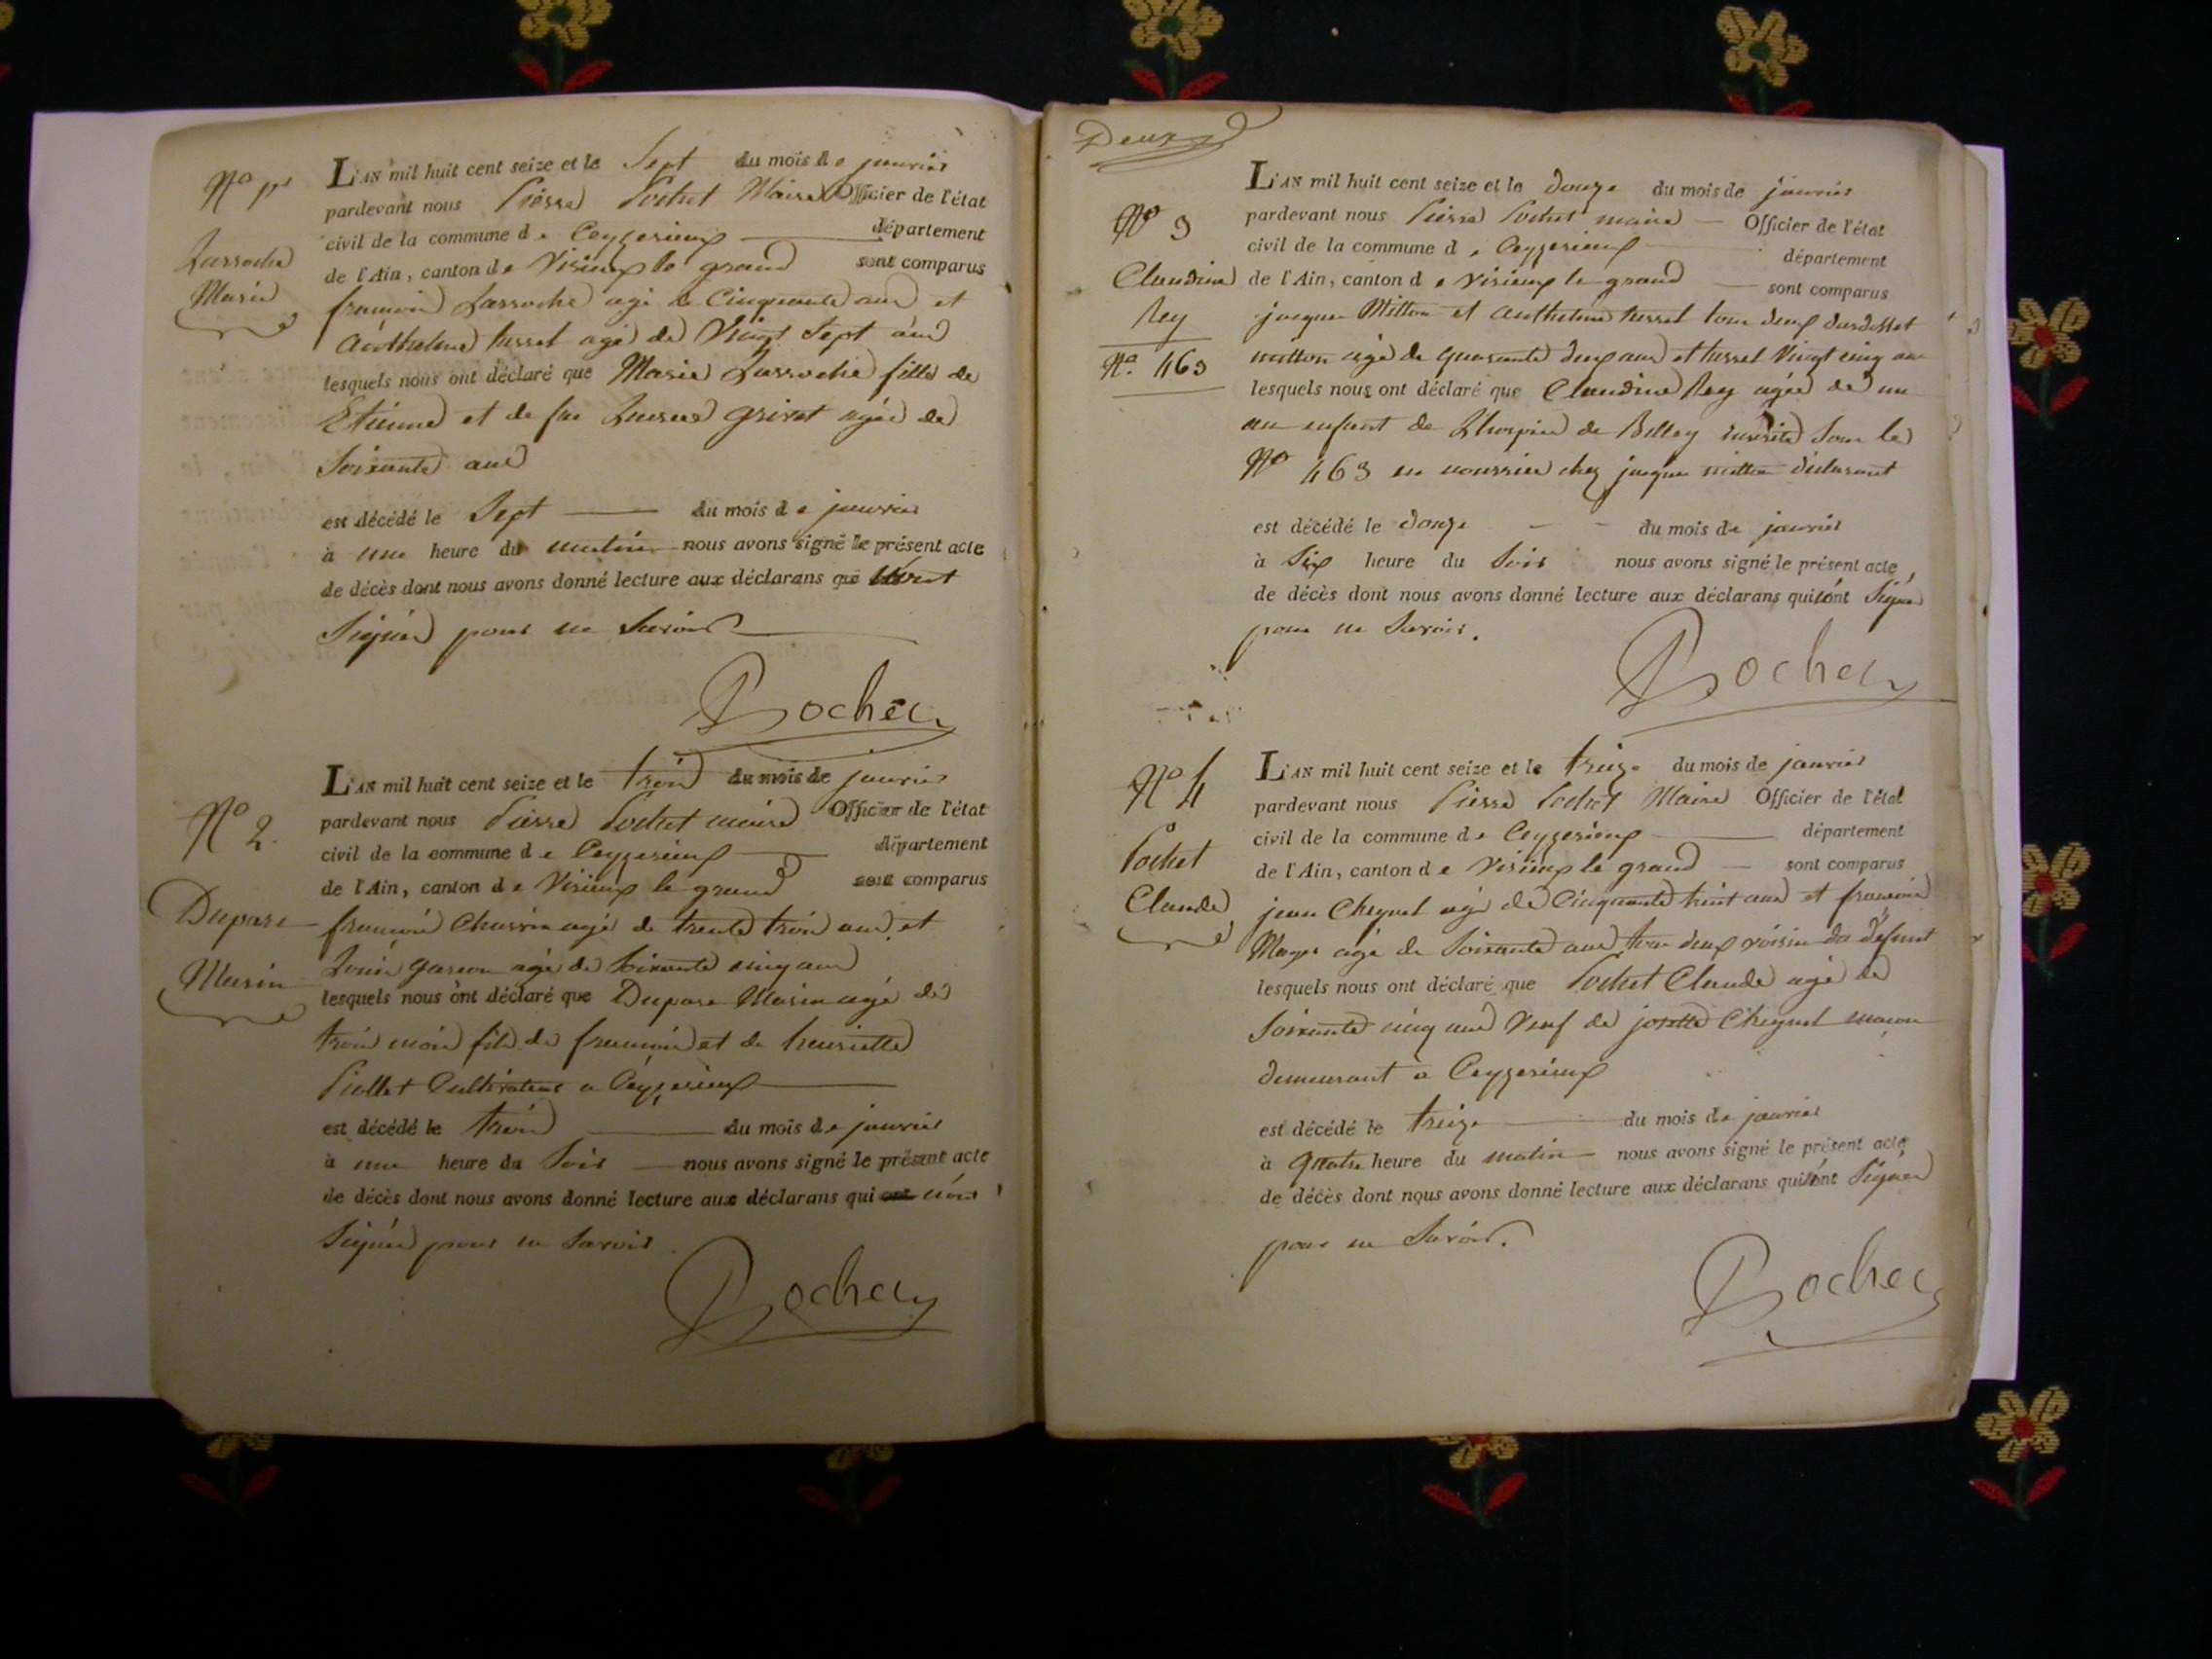 No 1er
Larroche
Marie
L'AN mil huit cent seize et le Sept du mois de janvier
pardevant nous Pierre Pochet Maire Officier de l'état
civil de la commune de Ceyzerieux département
de l'Ain, canton de Virieux le grand sont comparus
francois Larroche agé de Cinquante ans et
Anthelme tissot agé de Vingt Sept ans
lesquels nous ont déclaré que Marie Larroche fille de
Etienne et de feu Grivet agée de
Soixante ans
est décédé le Sept du mois de janvier
à une heure du matin nous avons signé le présent acte
de décès dont nous avons donné lecture aux déclarans qui n'ont
Signés pour ne Savoir
Pochet
No 2.
Duparc
Marin
L'AN mil huit cent seize et le trois du mois de janvier
pardevant nous Pierre Pochet maire Officier de l'état
civil de la commune de Ceyzerieux département
de l'Ain, canton de Virieux le grand sont comparus
francois Charvin agé de trente trois ans et
Louis agé de Soixante cinq ans
lesquels nous ont déclaré que Duparc Marin agé de
trois mois fils de francois et de henriette
Piollet Cultivateur a Ceyzerieux
est décédé le trois du mois de janvier
à une heure du Soir nous avons signé le présent acte
de décès dont nous avons donné lecture aux déclarans qui ont n'ont
Signés pour ne Savoir
Pochet
Deux
No 3
Claudine
Rey
No. 463
L'AN mil huit cent seize et le douze du mois de janvier
pardevant nous Pierre Pochet maire Officier de l'état
civil de la commune de Ceyzerieux département
de l'Ain, canton de Virieux le grand sont comparus
jacques Mitton et Anthelme tissot tous deux
mitton agé de quarante deux ans et tissot Vingt cinq ans
lesquels nous ont déclaré que Claudine Rey agée de un
an enfant de Lhospice de Belley Inscrite Sous le
No 463 en nourrice chez jacques mitton déclarant
est décédé le douze du mois de janvier
à Six heure du Soir nous avons signé le présent acte
de décès dont nous avons donné lecture aux déclarans qui n'ont Signés
pour ne Savoir.
Pochet
No 4
Pochet
Claude
L'AN mil huit cent seize et le treize du mois de janvier
pardevant nous Pierre Pochet Maire Officier de l'état
civil de la commune de Ceyzerieux département
de l'Ain, canton de Virieux le grand sont comparus
jean Cheynel agé de Cinquante huit ans et francois
agé de Soixante ans tous deux voisin du défunt
lesquels nous ont déclaré que Pochet Claude agé de
Soixante cinq ans Veuf de josette Cheynel macon
demeurant à Ceyzerieux
est décédé le treize du mois de janvier
à Quatre heure du matin nous avons signé le présent acte
de décès dont nous avons donné lecture aux déclarans qui n'ont Signés
pour ne Savoir.
Pochet